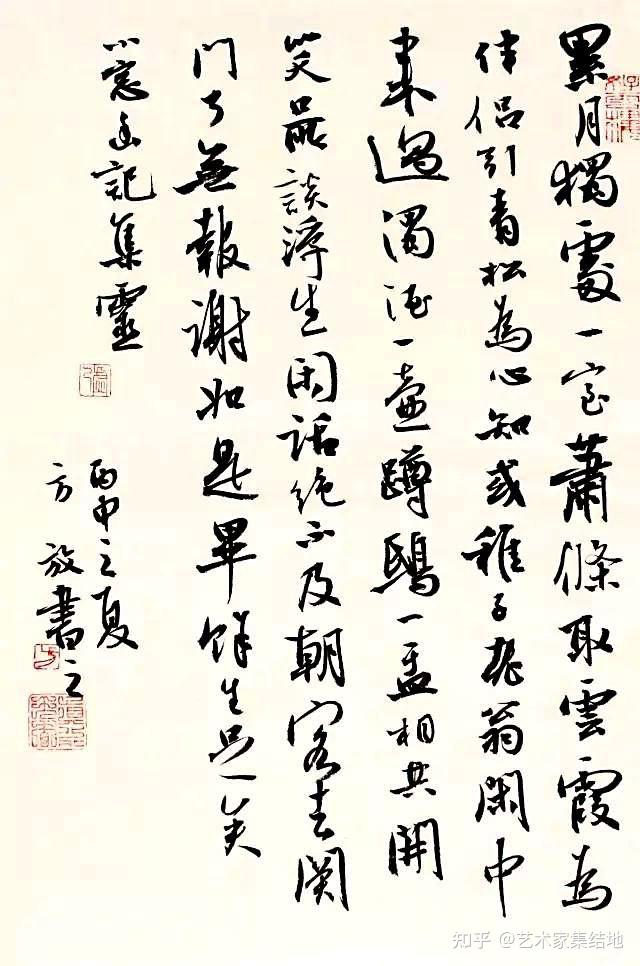 累月獨處一室蕭條取雲霞為
伴侶引青松為心知或稚子老翁閑中
來過濁酒一壺蹲鴟一盂相共開
笑口所談浮生閑話絕不及朝客去関
門了無報謝如是畢餘生足矣
小窗幽記集靈
丙申之夏
方放書之
知乎 @艺术家集结地